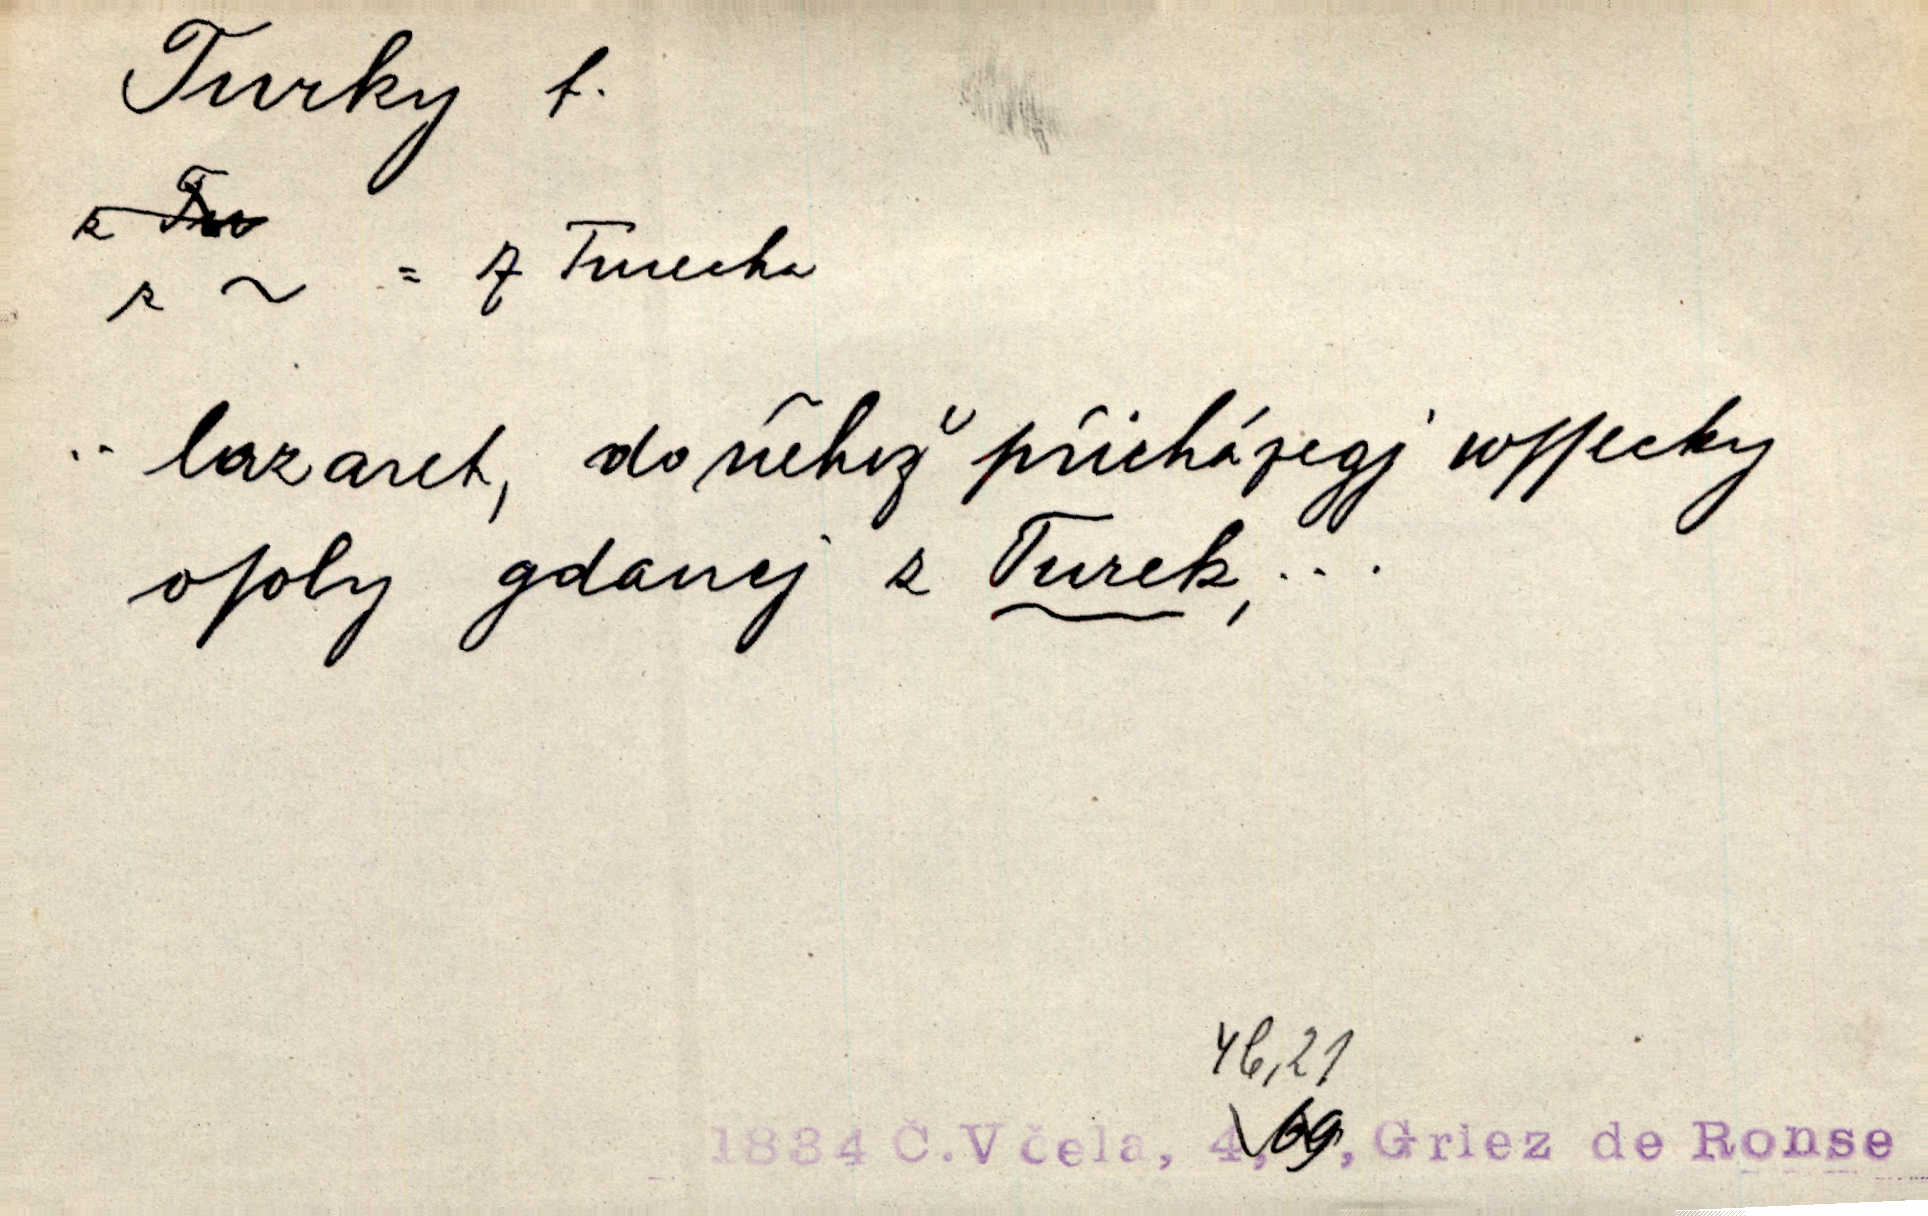 Turky f.
z Tu
z ~ = z Turecka
.. lazaret, do něhož přicházegj wſſecky
oſoby gdaucj z Turek, ...
46,21
1834 Č.Včela, 4, 69, Griez de Ronse